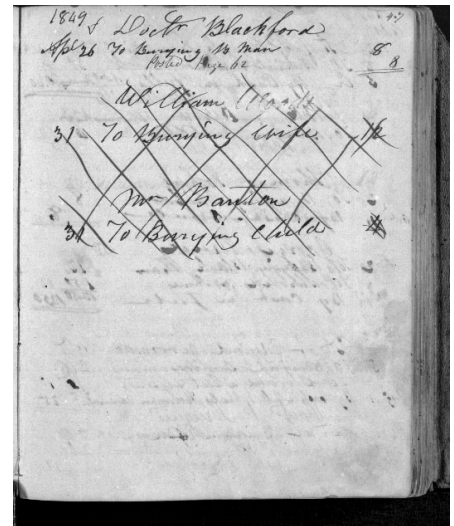 1849
Doctr Blackford
Apl 26 To Burying B Man 8
Posted Page 62 8
William Woods
31 To Burying Wife
Mr Banton
31 To Burying Child